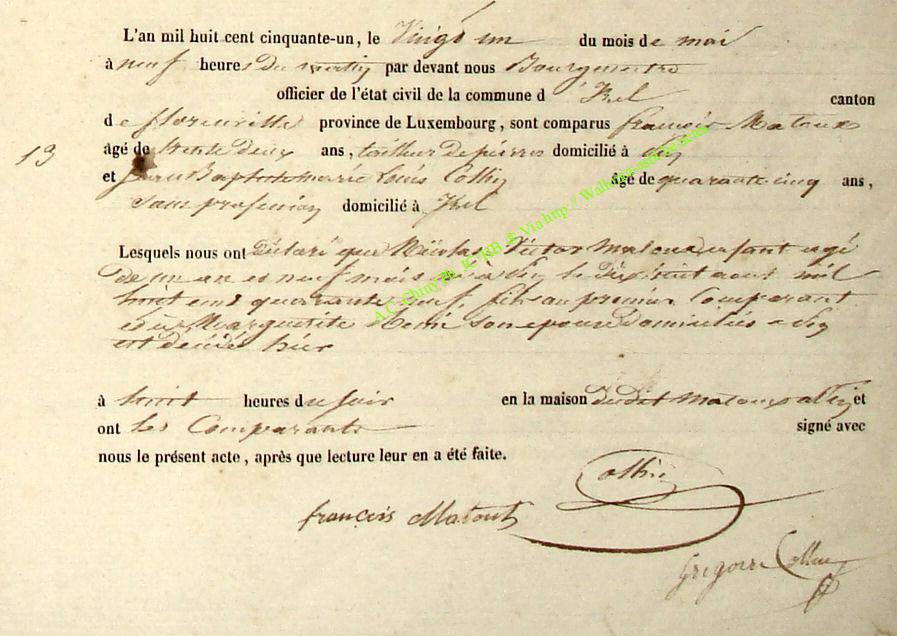 L'an mil huit cent cinquante-un, le Vingt un du mois de mai
à neuf heures du matin par devant nous Bourgmestre
officier de l'état civil de la commune d' Izel canton
de florenville province de Luxembourg, sont comparus françois Matoux
13 âgé de trente deux ans, tailleur de pierres domicilié à
et Jean Baptiste marie Louis Collin âgé de quarante cinq ans,
Sans profession domicilié à Izel
Lesquels nous ont déclaré que Nicolas Victor Matoux enfant agé
de un an et neuf mois né a le dix huit aout mil
huit cent quarante neuf, fils au premier Comparant
et à Marguerite Henri son epouse domiciliés a
est décédé hier
à huit heures du soir en la maison dudit Matoux a et
ont les Comparants signé avec
nous le présent acte, après que lecture leur en a été faite.
Collin
françois Matout
Grégoire Collin
A.C. Cluny &